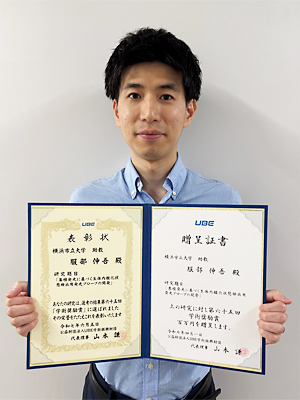 UBE
表彰状
横浜市立大学 助教
服部 伸吾 殿
研究題目
あなたの研究は、選考の結果第六十五回
「学術奨励賞」に選ばれました
その栄誉をたたえこれを表彰いたします
公益財団法人UBE学術振興財団
代表理事 山本 謙
UBE
贈呈証書
横浜市立大学 助教
服部 伸吾 殿
研究題目
上の研究に対し第六十五回
学術奨励賞
百万円を贈呈します。
公益財団法人UBE学術振興財団
代表理事 山本 謙